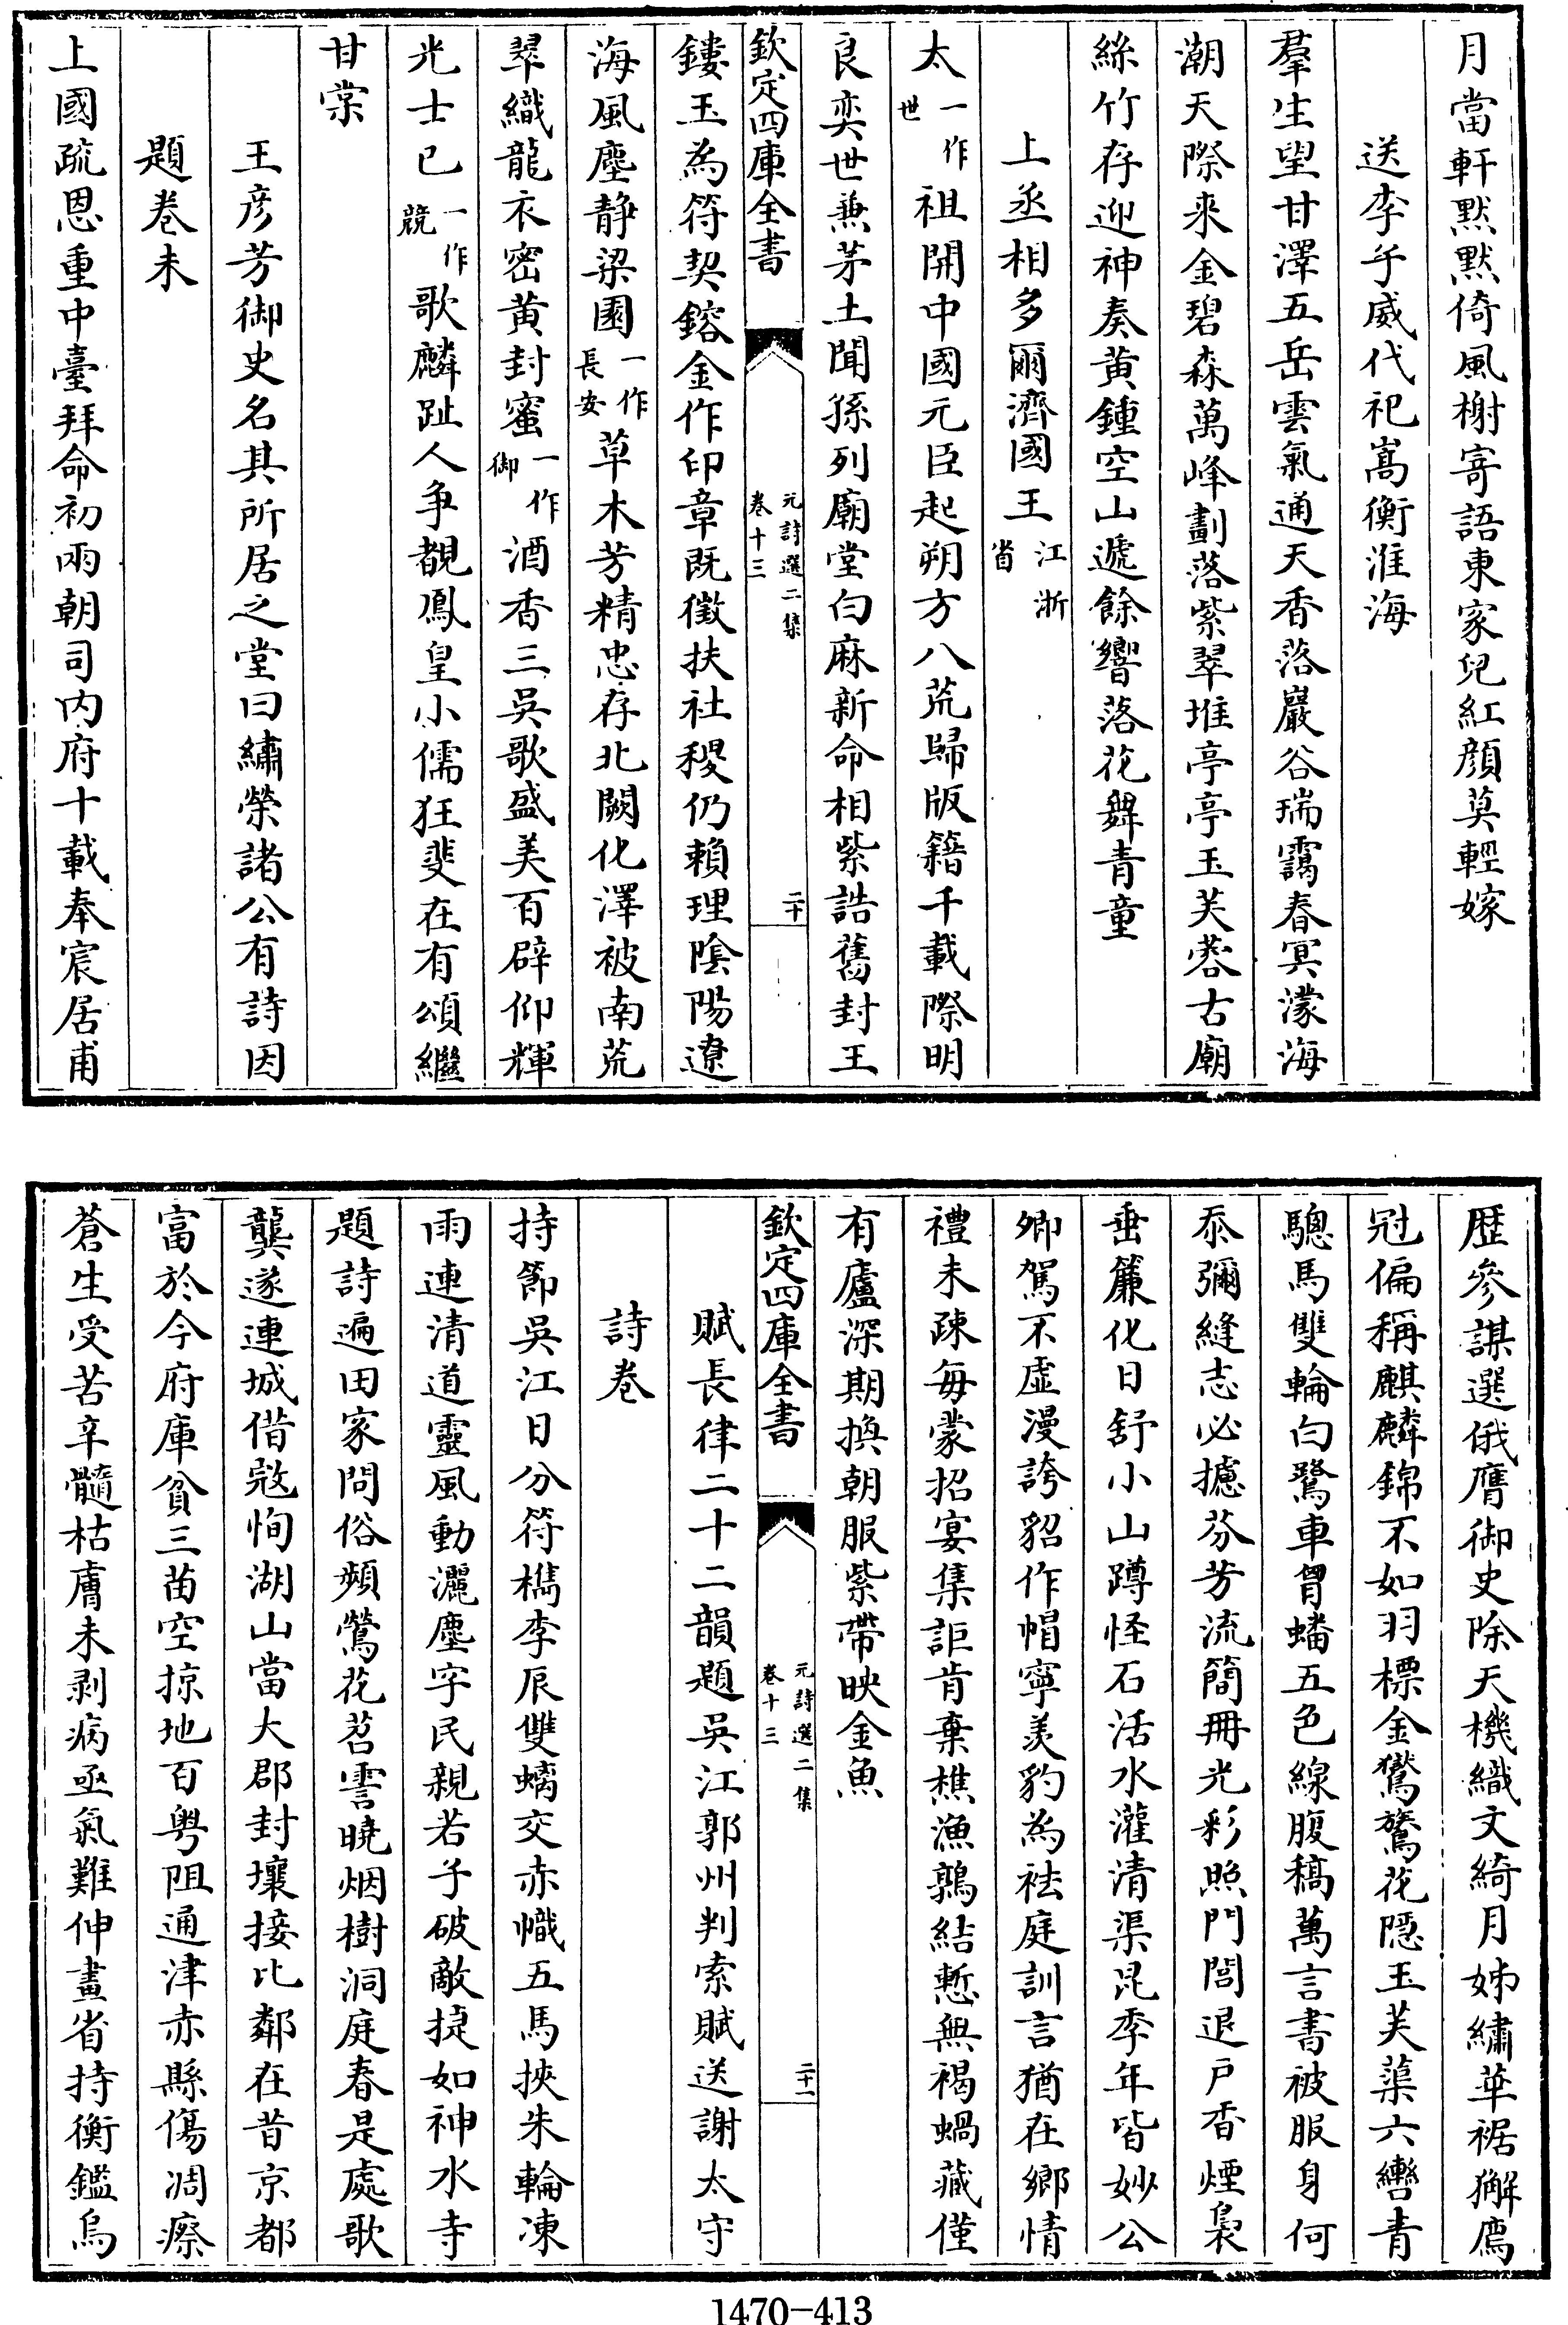 月當軒默默倚風榭寄語東家兒紅顔莫輕嫁
送李千威代祀嵩衡淮海
羣生望甘澤五岳雲氣通天香落巖谷瑞靄春冥濛海
潮天際來金碧森萬峰劃落紫翠堆亭亭玉芙蓉古廟
絲竹存迎神奏黄鍾空山遞餘響落花舞青童
上丞相多爾濟國王江浙省
太一作世祖開中國元臣起朔方八荒歸版籍千載際明
良奕世兼茅土聞孫列廟堂白麻新命相紫誥舊封王
欽定四庫全書 元詩選二集卷十三 二十
鏤玉為符契鎔金作印章既徵扶社稷仍賴理陰陽遼
海風塵静梁園一作長安草木芳精忠存北闕化澤被南荒
翠織龍衣密黄封蜜一作御酒香三吳歌盛美百辟仰輝
光士已一作競歌麟趾人争覩鳳皇小儒狂斐在有頌繼
甘棠
王彦芳御史名其所居之堂曰繡榮諸公有詩因
題卷末
上國疏恩重中臺拜命初兩朝司内府十載奉宸居甫
歴參謀選俄膺御史除天機織文綺月姊繡華裾獬廌
冠偏稱麒麟錦不如羽標金鸑鷟花隱玉芙蕖六轡青
驄馬雙輪白鷺車胃蟠五色線腹稿萬言書被服身何
忝彌縫志必攄芬芳流簡冊光彩照門閭退戶香煙裊
垂簾化日舒小山蹲怪石活水灌清渠昆季年皆妙公
卿駕不虛漫誇貂作帽寧羡豹為袪庭訓言猶在鄉情
禮未疎每蒙招宴集詎肯棄樵漁鶉結慙無褐蝸藏僅
有廬深期換朝服紫帶映金魚
欽定四庫全書 元詩選二集卷十三 二十一
賦長律二十二韻題吳江郭州判索賦送謝太守
詩卷
持節吳江日分符檇李辰雙螭交赤幟五馬挾朱輪凍
雨連清道靈風動灑塵字民親若子破敵捷如神水寺
題詩遍田家問俗頻鶯花苕霅曉烟樹洞庭春是處歌
龔遂連城借寇恂湖山當大郡封壤接比鄰在昔京都
富於今府庫貧三苗空掠地百粤阻通津赤縣傷凋瘵
蒼生受苦辛髓枯膚未剥病亟氣難伸畫省持衡鑑烏
1470-413